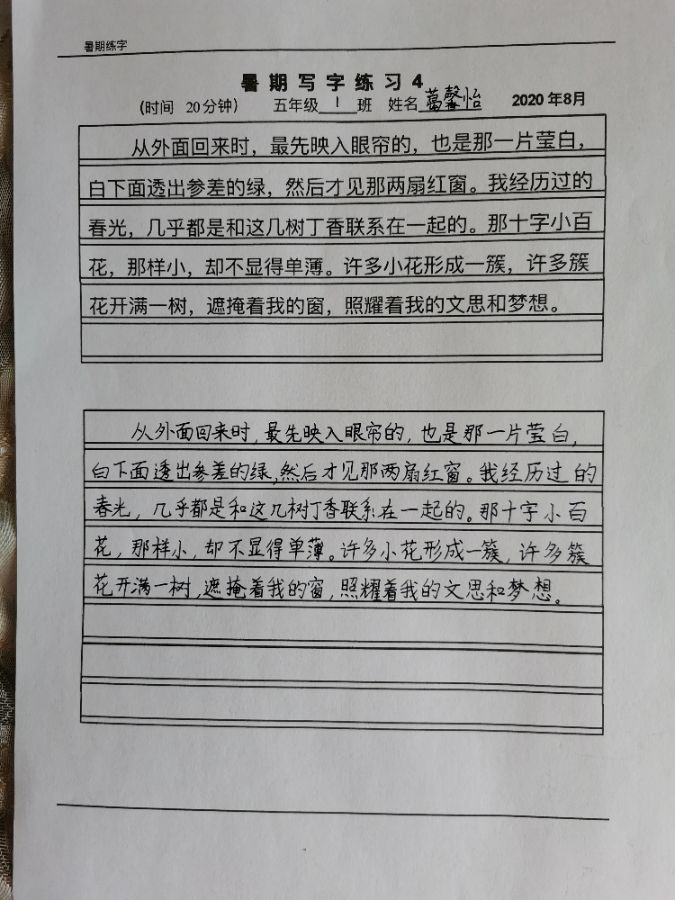 暑期练字
暑期写字练习4
（时间 20分钟） 五年级 1 班 姓名 葛馨怡 2020年8月
从外面回来时，最先映入眼帘的，也是那一片莹白，
白下面透出参差的绿，然后才见那两扇红窗。我经历过的
春光，几乎都是和这几树丁香联系在一起的。那十字小百
花，那样小，却不显得单薄。许多小花形成一簇，许多簇
花开满一树，遮掩着我的窗，照耀着我的文思和梦想。
从外面回来时，最先映入眼帘的，也是那一片莹白，
白下面透出参差的绿，然后才见那两扇红窗。我经历过的
春光，几乎都是和这几树丁香联系在一起的。那十字小百
花，那样小，却不显得单薄。许多小花形成一簇，许多簇
花开满一树，遮掩着我的窗，照耀着我的文思和梦想。